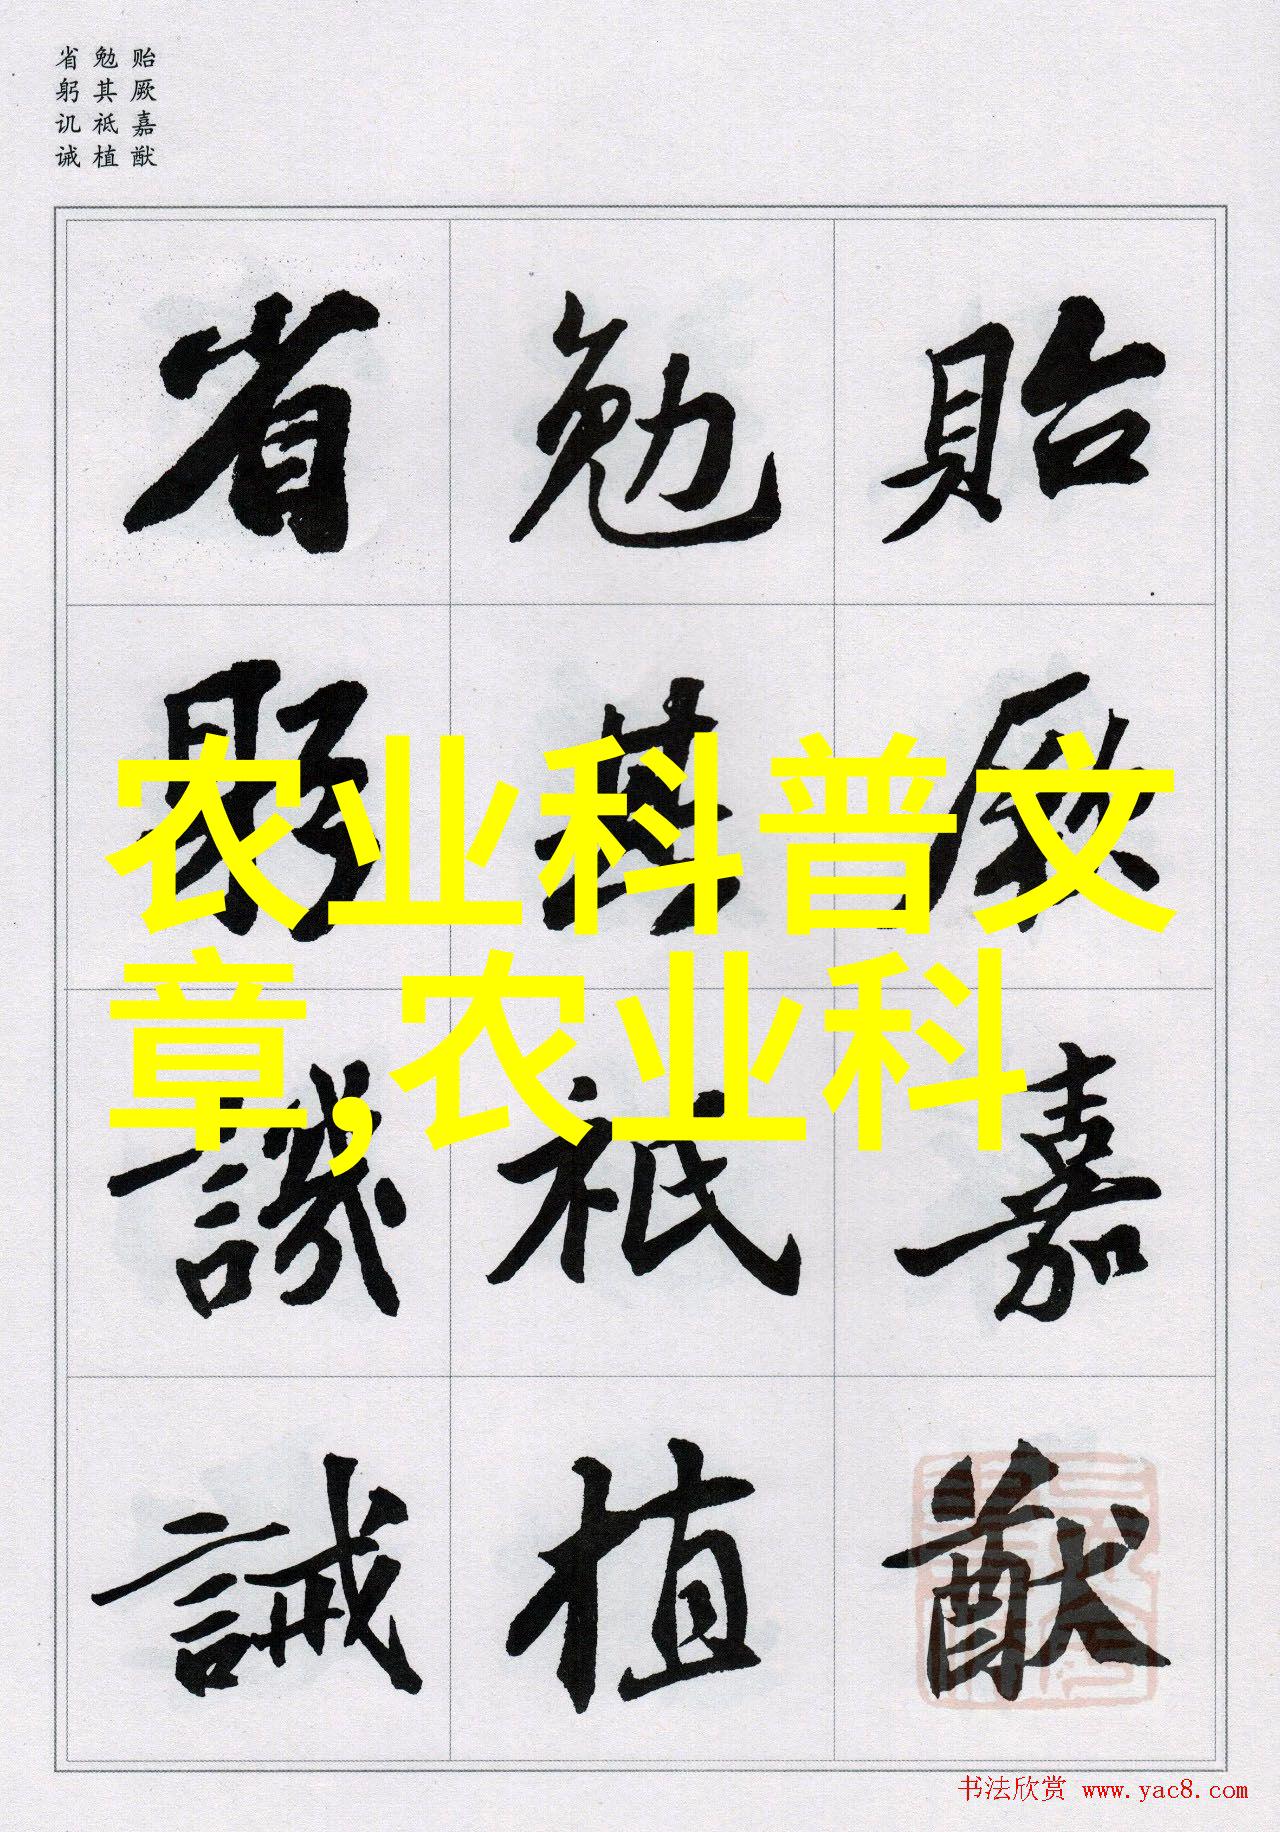 贻厥嘉猷
勉其祗植
省躬讥诫
貽厥嘉猷
勉其祗植
省躬譏誡
农业科普文
章,农业科
书法欣赏 www.yac8.com